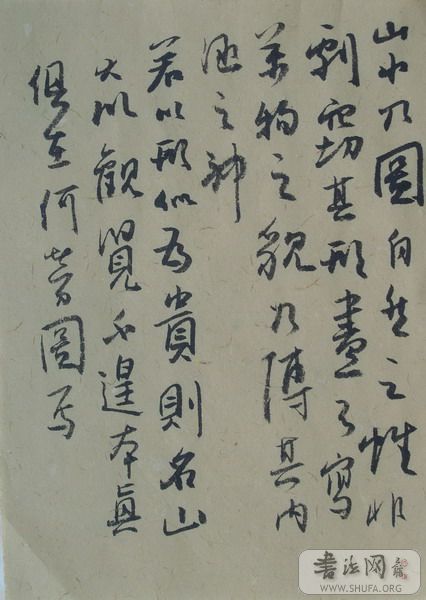 山水乃圖自然之性非
剽窃其形畫不寫
萬物之貌乃傳其内
涵之神
若以形似為貴則名山
大川觀覽不遑本真
俱在何勞圖焉
書法网
WWW.SHUFA.ORG